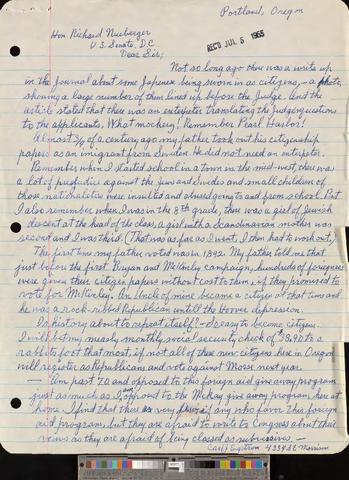 Portland, Oregon
Hon. Richard Nueberger
U.S. Senate, D.C.
REC'D JUL 5 1955
Dear Sir;
Not so long ago there was a write up
in the Journal about some Japanese being sworn in as citizens, - a photo,
showing a large number of them lined up before the Judge. And the
article stated that there was an interpeter translating the Judges questions
to the applicants. What mockery! Remember Pearl Harbor!
Almost 3/4 of a century ago my father took out his citizenship
papers as an imigrant from Sweden. He did not need an interpeter.
Remember when I started school in a town in the mid-west, there was
a lot of predudice against the Jews and Swedes and small children of
those nationalities were insulted and abused going to and from school. But
I also remember when I was in the 8th grade, there was a girl of Jewish
descent at the head of the class, a girl with a Scandinavian mother was
second and I was third. (That was as far as I went, I then had to work out,)
The first time my father voted was in 1892. My father told me that
just before the first Bryan and McKinley campaign, hundreds of foreigners
were given their citizen papers without cost to them if they promised to
vote for McKinley. An Uncle of mine became a citizen at that time and
he was a rock-ribbed Republican untill the Hoover depression.
Is history about to repeat itself? - so easy to become citizens.
I will bet my measly monthly social security check of 38.90 to a
rabbits foot that most, if not all of these new citizens here in Oregon
will register as Republicans and vote against Morse next year.
— I am past 70 and opposed to this foreign aid give away program
just as much as I opposed to the McKay give away program here at
home. I find that there are very few if any who favor this foreign
aid program, but they are afraid to write to Congress about their
views as they are afraid of being classed as subversives. —
Carl J. Engstrom 4334 S.E. Morrison